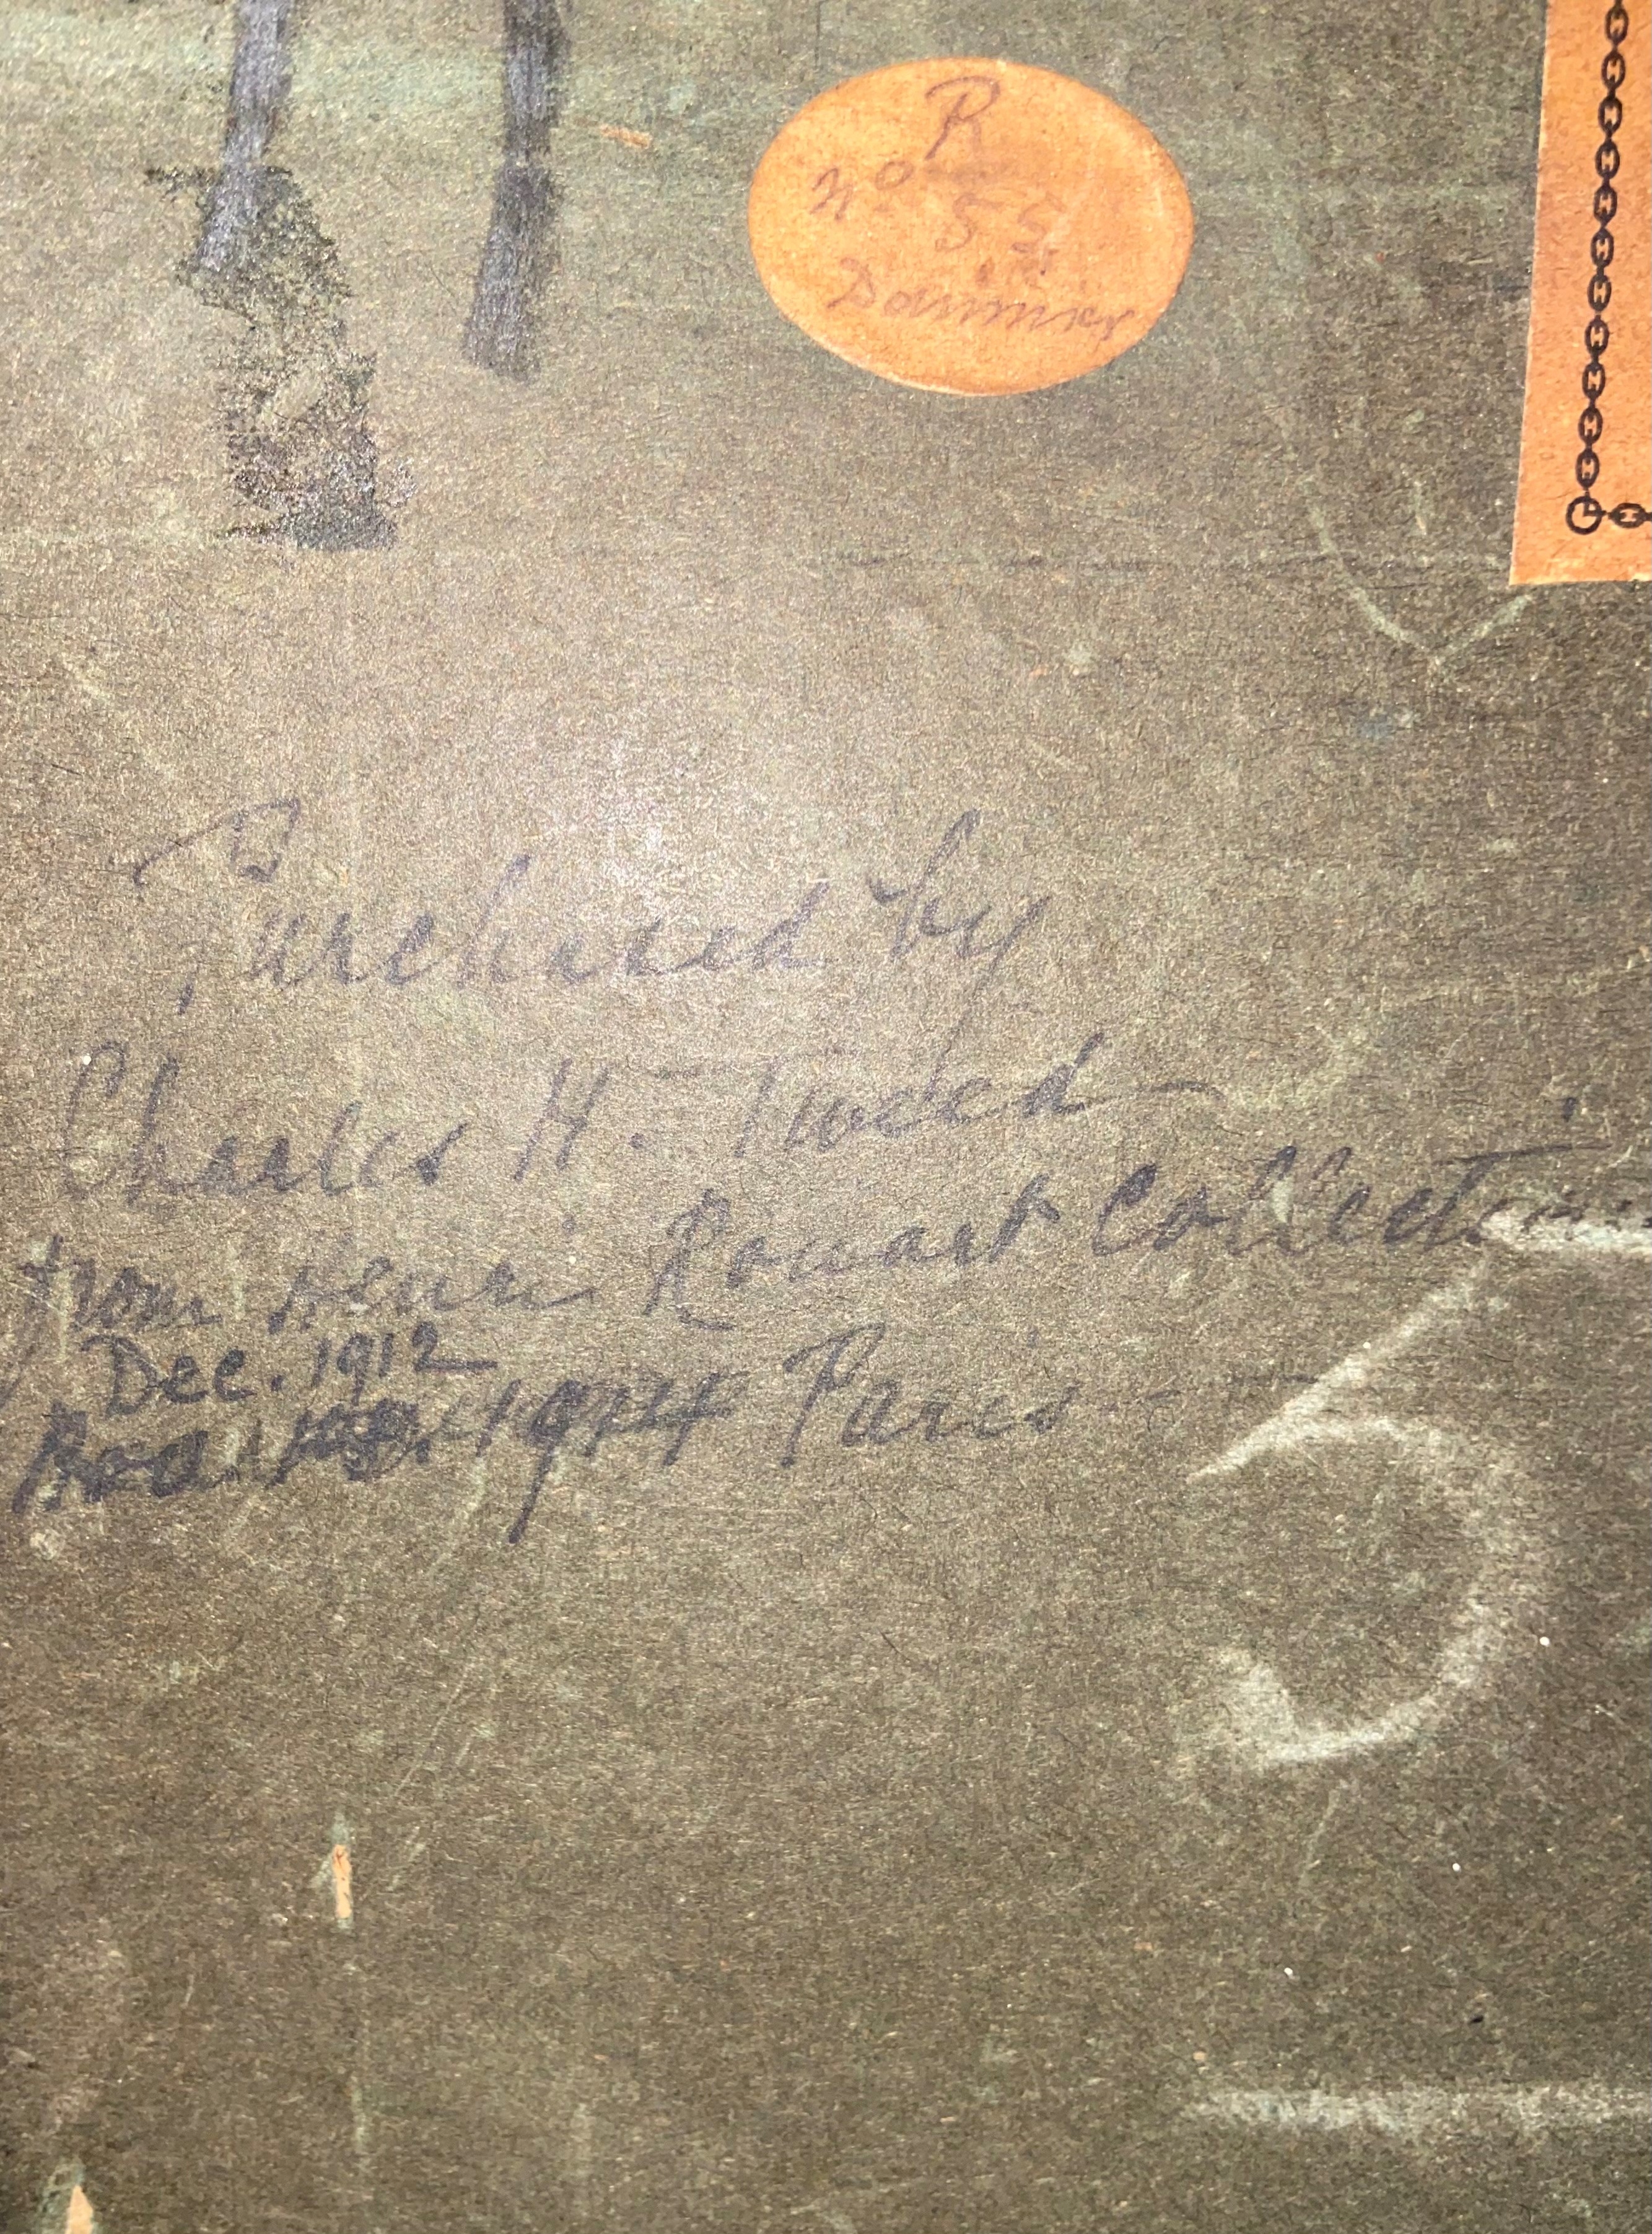 R
No 55
Daumier
Purchased by
Charles H. Tweed
from Henri Rouart Collection
Dec. 1912
1914 Paris
5